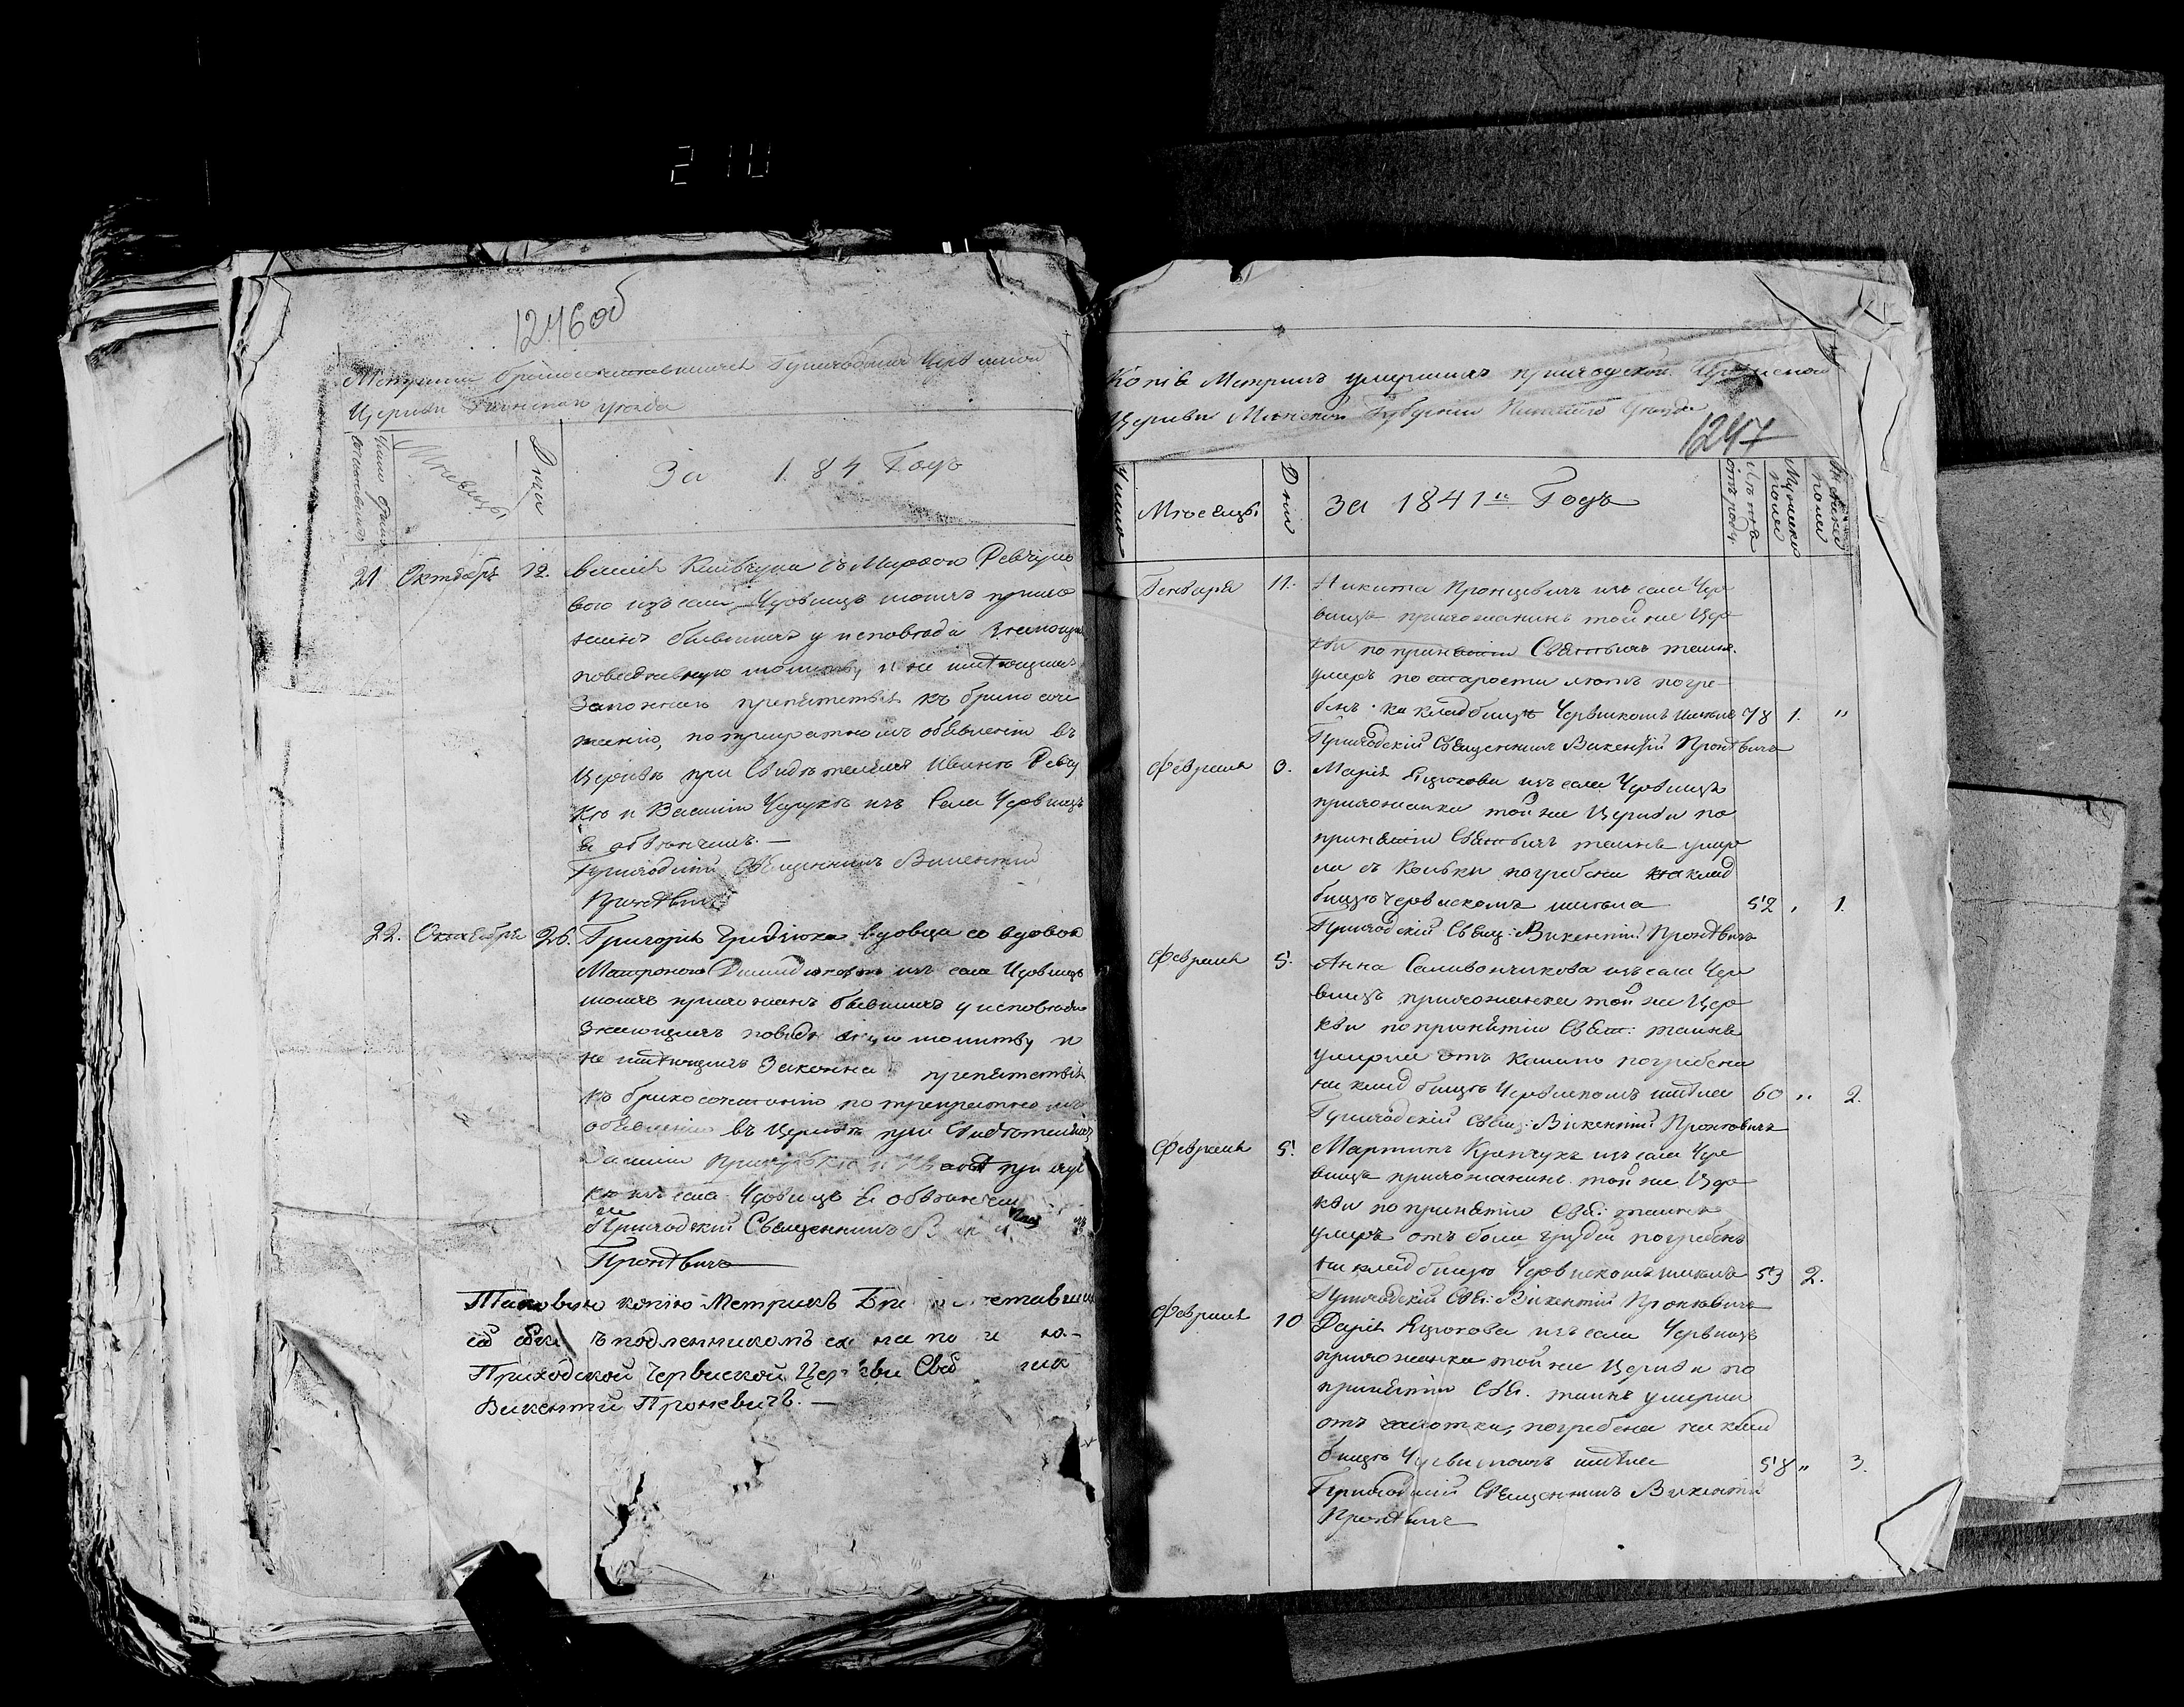 210
1246 об
Метрика бракосочетавшихся Приходской Червиской
Церкви Пинскаго уезда
Число брако
сочетавшихся
Месяцы
Дни
За 184 Годъ
21 Октябръ 12.
съ Марьею Ревчуко
вою изъ села Чрвищъ тоихъ прихо
жанъ бывшихъ у исповѣди знающихъ
повседневную молитву, и не имѣющихъ
Законнаго препятствія къ брако соче
танію, по трикратномъ объявленіи въ
Церквѣ при Свидѣтеляхъ Иванѣ Ревчу
кю и Василіи изъ Села Чрвищъ
я обвѣнчалъ. —
Приходскій Священникъ Викентій
Пронѣвичъ
22. Октябрь 26. Григорія вдовца со вдовою
Матроною изъ села Чрвищъ
тоихъ прихожанъ бывшихъ у исповѣди
Знающихъ молитву и
не имѣющихъ Законна препятствія
къ бракосочетанію по трикратномъ
объявленіи въ Церквѣ при Свидѣтеляхъ
кю изъ села Чрвищъ я обвѣнчалъ
Приходскій Священникъ
Пронѣвичъ
Таковую копію Метрикъ Бра
подленникомъ
Приходской Червиской Церкви
Викентій Проневичъ. —
Копія Метрикъ умершихъ приходской Червиской
Церкви Минской Губерніи Пинскаго Уезда
1247
Число
Месяцы
Дни
за 1841й Годъ
Лѣта
отъ роду
Мужеска
полу
Женска
полу
Генваря 11. Никита Пронцевичъ изъ села Чер
вищъ прихожанинъ той же Цер
кви по принятіи Святыхъ таинъ
умеръ по старости лѣтъ погре-
бенъ на кладбищѣ Червискомъ имѣлъ 78 1. "
Приходскій Священникъ Викентій Пронѣвичъ
Февраля 3. Марія Яцукова изъ села Червищъ
прихожанка той же Церкви по
принятіи Святыхъ таинъ умер
ла съ Кольки погребена на клад
бищѣ Червискомъ имѣла 52 , 1.
Приходскій Свящ: Викентій Пронѣвичъ
Февраля 5. Анна Саливончикова изъ села Чер
вищъ прихожанка той же Цер
кви по принятіи Свят: таинъ
умерла отъ Кашлю погребена
на кладбищѣ Червискомъ имѣла 60 " 2.
Приходскій Свящ: Викентій Проневичъ
Февраля 5. Мартинъ Кравчукъ изъ села Чер
вищъ прихожанинъ той же Цер
кви по принятіи Свя: таинъ
умеръ отъ боли грудей погребенъ
на кладбищѣ Червискомъ имѣлъ 53 2.
Приходскій Свя: Викентій Проневичъ
Февраля 10 Дарія Яцукова изъ села Червищъ
прихожанка той же Церкви по
принятіи Свя. таинъ умерла
отъ чахотки, погребена на клад
бищѣ Червискомъ имѣла 58 " 3.
Приходскій Священникъ Викентій
Пронѣвичъ